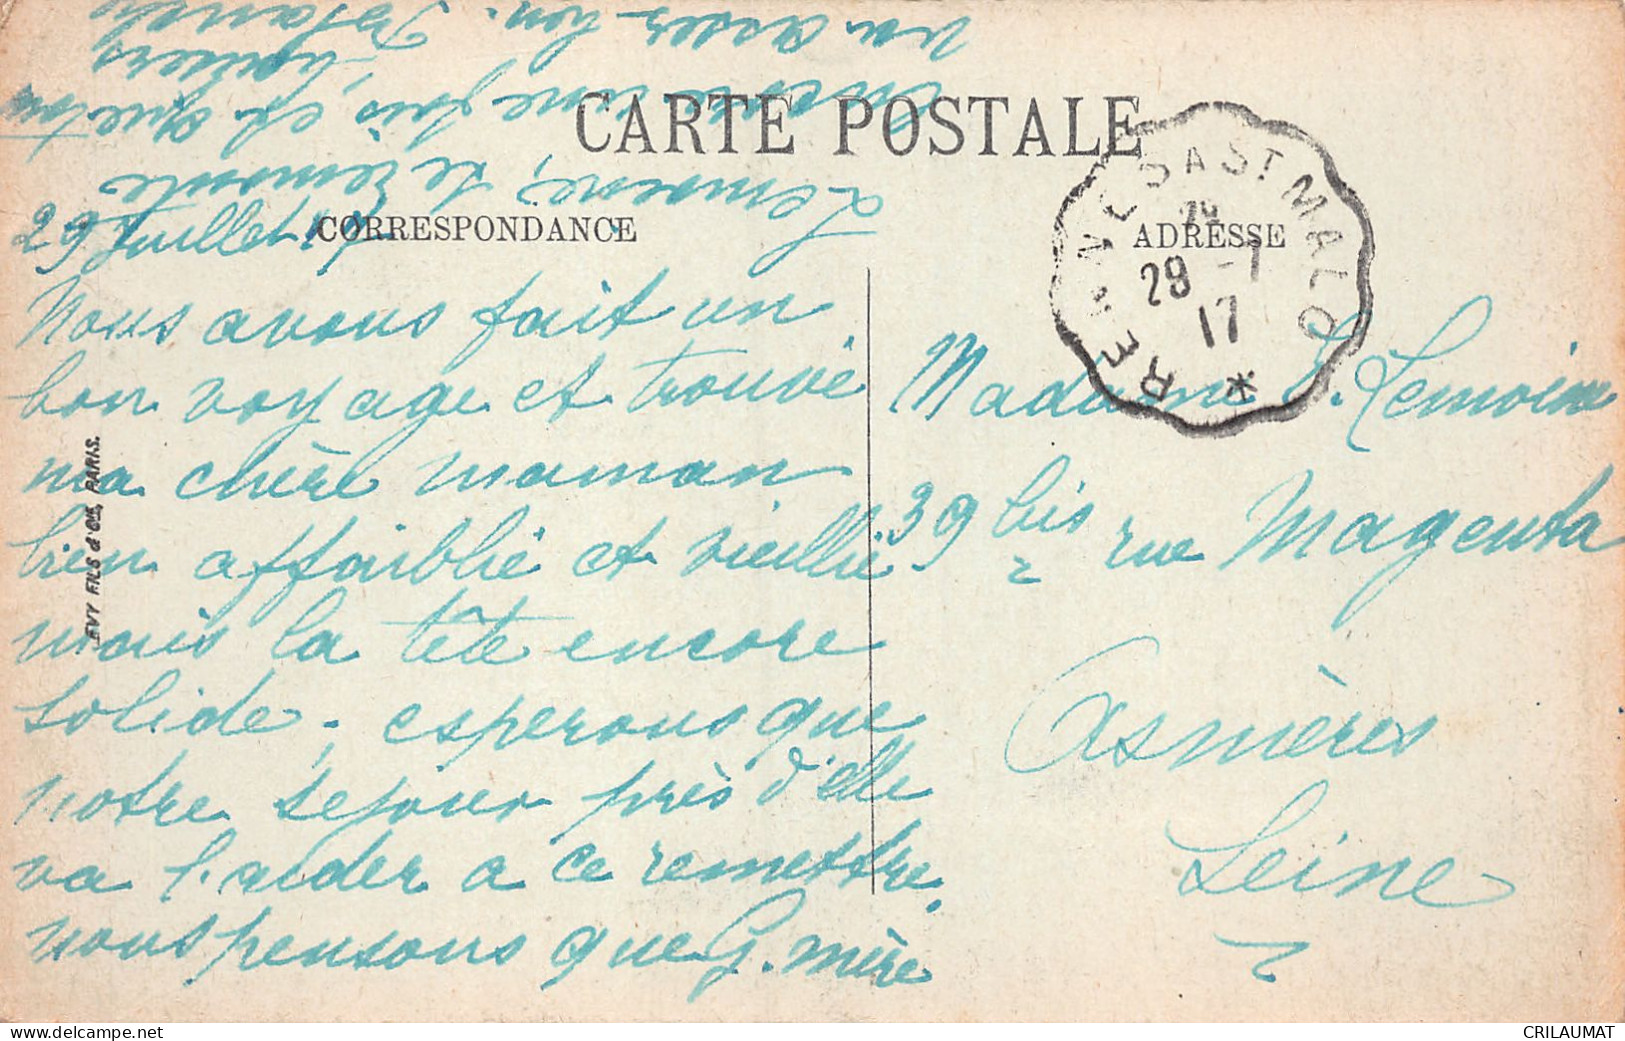 CARTE POSTALE
CORRESPONDANCE
ADRESSE
29 Juillet 17
Nous avons fait un
bon voyage et trouvé
ma chère maman
bien affaiblie et vieillie
mais la tête encore
solide, esperons que
notre sejour près d'elle
va l'aider a ce remettre.
nous pensons que G. mère
Lemoine, se remonte
encore une fois, et que ton
va assez bon.
Madame Lemoine
39 bis rue Magenta
Asnières
Seine
RENNES A ST MALO
29 -7
17
LEVY FILS & Cie, PARIS.
CRILAUMAT